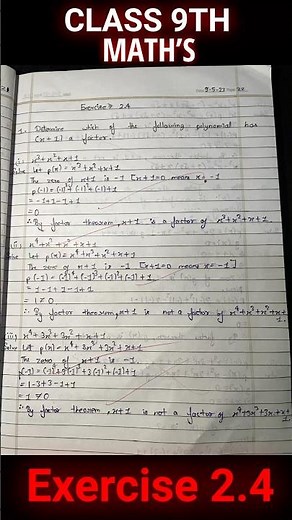 CLASS 9TH
MATH'S
Exercise 2.4
1. Determine which of the following polynomial has
(x+1) a factor.
(i) x³+x²+x+1
Solve Let p(x) = x³+x²+x+1
The zero of x+1 is -1 [x+1=0 means x=-1
p(-1) = (-1)³+(-1)²+(-1)+1
= -1+1-1+1
= 0
∴ By factor theorem, x+1 is a factor of x³+x²+x+1.
(ii) x⁴+x³+x²+x+1
Solve Let p(x) = x⁴+x³+x²+x+1
The zero of x+1 is -1 [x+1=0 means x=-1]
p(-1) = (-1)⁴+(-1)³+(-1)²+(-1)+1
= 1-1+1-1+1
= 1≠0
∴ By factor theorem, x+1 is not a factor of x⁴+x³+x²+x+1.
(iii) x⁴+3x³+3x²+x+1
Solve Let p(x) = x⁴+3x³+3x²+x+1
The zero of x+1 is -1.
p(-1) = (-1)⁴+3(-1)³+3(-1)²+(-1)+1
= 1-3+3-1+1
= 1≠0
∴ By factor theorem, x+1 is not a factor of x⁴+3x³+3x+x+1.
Exercise 2.4